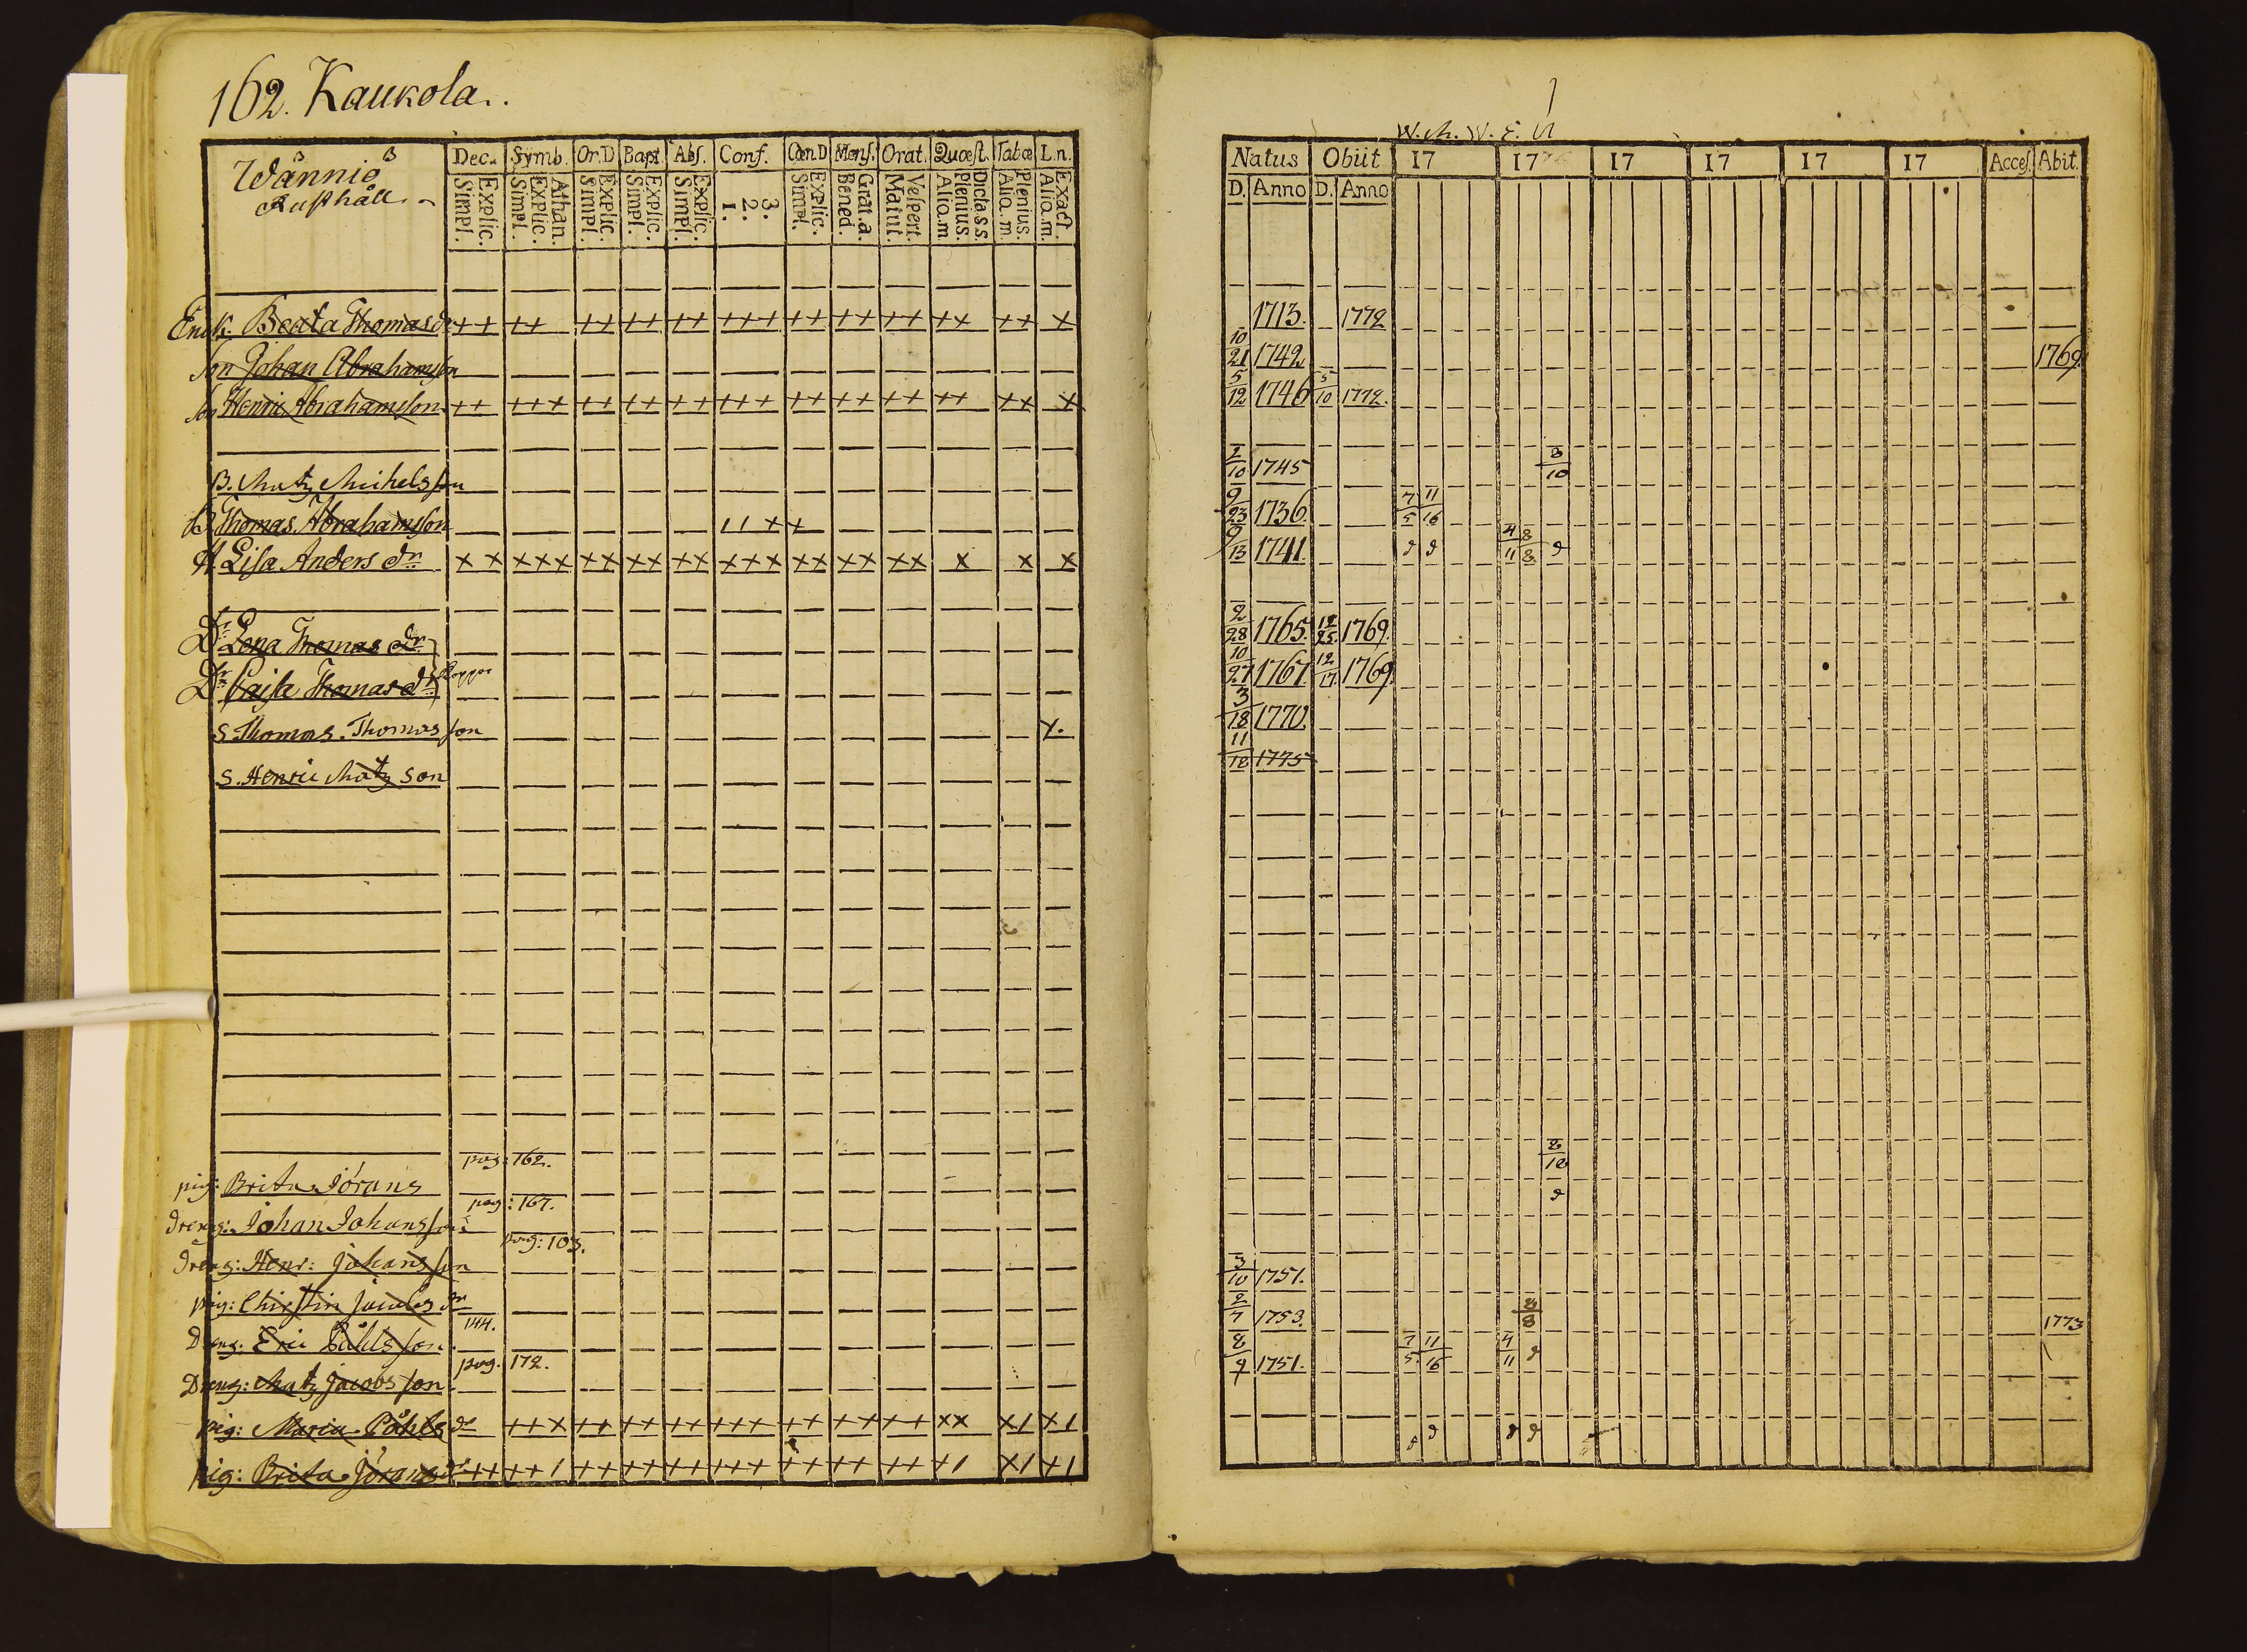 162. Kaukola.
Wånniö
Rusthåll
Dec. Symb. Or.D Bapt. Abs. Conf. Cœn D Mens. Orat. Quæst. Tabœ L.n.
Explic. Simpl. Athan. Explic. Simpl. Explic. Simpl. Explic. Simpl. Explic. Simpl. 3. 2. 1. Explic. Simpl. Grat.a. Bened. Vespert. Matut. Dicta.s.s. Plenius. Aliq.m. Plenius. Aliq.m. Exact. Aliq.m.
Enck: Beata Thomas dr ++ ++ ++ ++ ++ +++ ++ ++ ++ ++ ++ x
Son Johan Abrahamsson
Son Henric Abrahamsson ++ +++ ++ ++ ++ +++ ++ ++ ++ ++ ++ x
B. Matz Michelsson
B Thomas Abrahamsson 11 ++
H Lisa Anders dr x x xxx xx xx xx xxx xx xx xx x x x
Dr Lena Thomas dr
Dr Caisa Thomas dr Koppor
S. Thomas. Thomas son x.
S. Henric Matz son
pag: 162.
pig: Brita Jörans
pag: 167.
Dreng: Johan Johansson
pag: 103.
Dreng: Henr: Johansson
pig: Chirstin Jacobs dr
144.
Dreng. Eric Påhlsson
pag. 172.
Dreng: Matz Jacobsson
pig: Maria Påhls dr ++x ++ ++ ++ +++ ++ ++ ++ xx x1 x1
pig: Brita Jörans dr ++ ++1 ++ ++ ++ +++ ++ ++ ++ +1 x1 +1
W. M. W. E.
Natus Obiit 17 17 17 17 17 17 Acces. Abit.
D. Anno D. Anno
1713. 1772
10/21 1742 1769
5/12 1746 5/10 1772.
2/10 1745 8/10
9/23 1736. 7/5 11/16
9/13 1741. 4/11 8/8
2/28 1765. 12/25 1769.
10/27 1767. 12/17 1769
3/18 1770
11/12 1775
2/12
3/10 1751.
2/7 1753. 8/8 1773
8/9 1751. 7/5 11/16 4/11